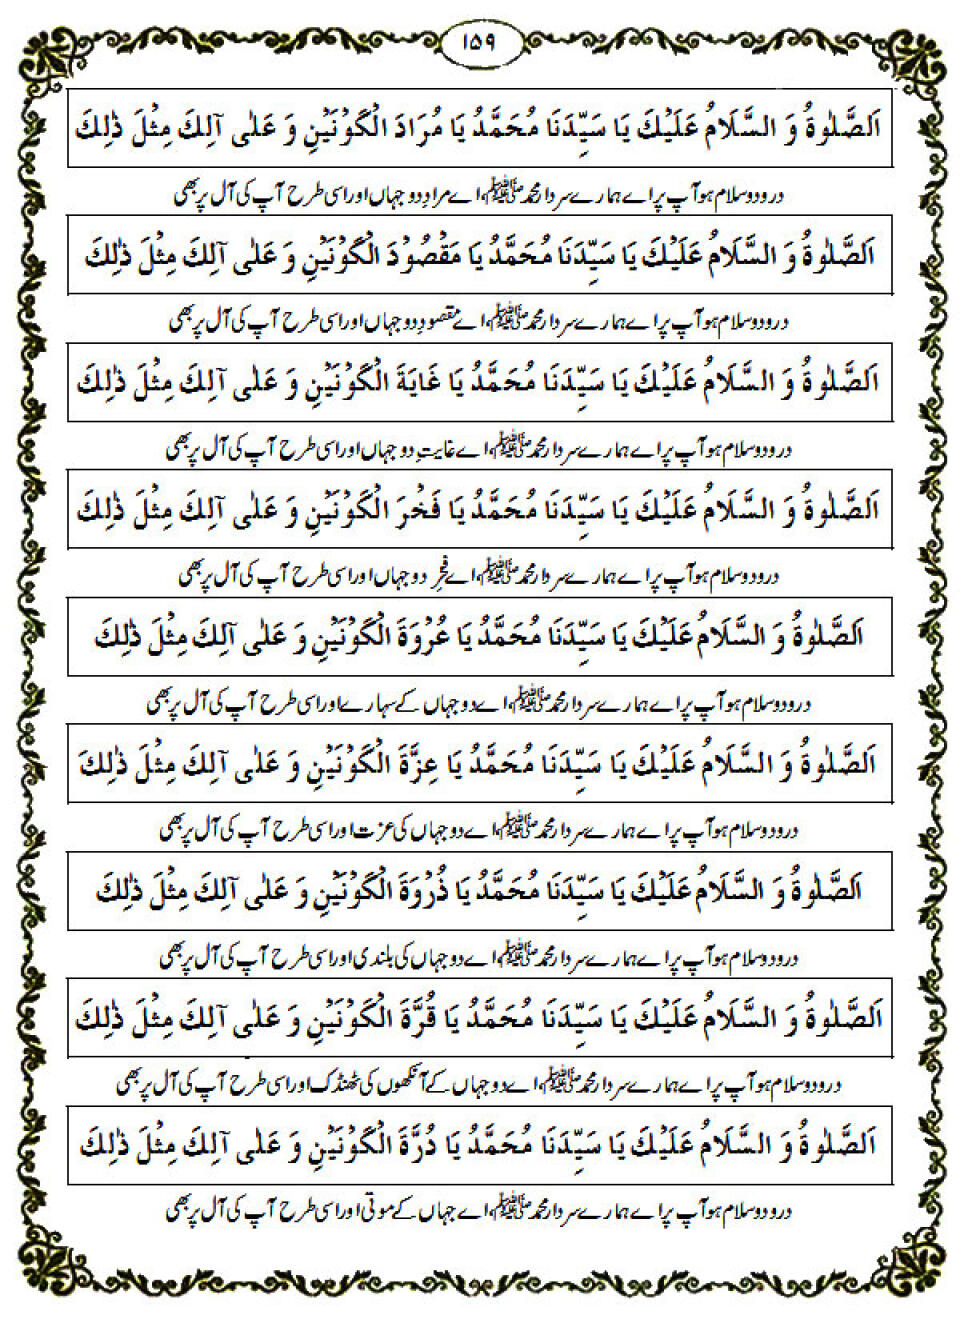 ۱۵۹
اَلصَّلٰوةُ وَ السَّلَامُ عَلَيْكَ يَا سَيِّدَنَا مُحَمَّدُ يَا مُرَادَ الْكَوْنَيْنِ وَ عَلٰى آلِكَ مِثْلَ ذٰلِكَ
درود و سلام ہو آپ پر اے ہمارے سردار محمد ﷺ، اے مرادِ دو جہاں اور اسی طرح آپ کی آل پر بھی
اَلصَّلٰوةُ وَ السَّلَامُ عَلَيْكَ يَا سَيِّدَنَا مُحَمَّدُ يَا مَقْصُوْدَ الْكَوْنَيْنِ وَ عَلٰى آلِكَ مِثْلَ ذٰلِكَ
درود و سلام ہو آپ پر اے ہمارے سردار محمد ﷺ، اے مقصودِ دو جہاں اور اسی طرح آپ کی آل پر بھی
اَلصَّلٰوةُ وَ السَّلَامُ عَلَيْكَ يَا سَيِّدَنَا مُحَمَّدُ يَا غَايَةَ الْكَوْنَيْنِ وَ عَلٰى آلِكَ مِثْلَ ذٰلِكَ
درود و سلام ہو آپ پر اے ہمارے سردار محمد ﷺ، اے غایتِ دو جہاں اور اسی طرح آپ کی آل پر بھی
اَلصَّلٰوةُ وَ السَّلَامُ عَلَيْكَ يَا سَيِّدَنَا مُحَمَّدُ يَا فَخْرَ الْكَوْنَيْنِ وَ عَلٰى آلِكَ مِثْلَ ذٰلِكَ
درود و سلام ہو آپ پر اے ہمارے سردار محمد ﷺ، اے فخرِ دو جہاں اور اسی طرح آپ کی آل پر بھی
اَلصَّلٰوةُ وَ السَّلَامُ عَلَيْكَ يَا سَيِّدَنَا مُحَمَّدُ يَا عُرْوَةَ الْكَوْنَيْنِ وَ عَلٰى آلِكَ مِثْلَ ذٰلِكَ
درود و سلام ہو آپ پر اے ہمارے سردار محمد ﷺ، اے دو جہاں کے سہارے اور اسی طرح آپ کی آل پر بھی
اَلصَّلٰوةُ وَ السَّلَامُ عَلَيْكَ يَا سَيِّدَنَا مُحَمَّدُ يَا عِزَّةَ الْكَوْنَيْنِ وَ عَلٰى آلِكَ مِثْلَ ذٰلِكَ
درود و سلام ہو آپ پر اے ہمارے سردار محمد ﷺ، اے دو جہاں کی عزت اور اسی طرح آپ کی آل پر بھی
اَلصَّلٰوةُ وَ السَّلَامُ عَلَيْكَ يَا سَيِّدَنَا مُحَمَّدُ يَا ذُرْوَةَ الْكَوْنَيْنِ وَ عَلٰى آلِكَ مِثْلَ ذٰلِكَ
درود و سلام ہو آپ پر اے ہمارے سردار محمد ﷺ، اے دو جہاں کی بلندی اور اسی طرح آپ کی آل پر بھی
اَلصَّلٰوةُ وَ السَّلَامُ عَلَيْكَ يَا سَيِّدَنَا مُحَمَّدُ يَا قُرَّةَ الْكَوْنَيْنِ وَ عَلٰى آلِكَ مِثْلَ ذٰلِكَ
درود و سلام ہو آپ پر اے ہمارے سردار محمد ﷺ، اے دو جہاں کے آنکھوں کی ٹھنڈک اور اسی طرح آپ کی آل پر بھی
اَلصَّلٰوةُ وَ السَّلَامُ عَلَيْكَ يَا سَيِّدَنَا مُحَمَّدُ يَا دُرَّةَ الْكَوْنَيْنِ وَ عَلٰى آلِكَ مِثْلَ ذٰلِكَ
درود و سلام ہو آپ پر اے ہمارے سردار محمد ﷺ، اے جہاں کے موتی اور اسی طرح آپ کی آل پر بھی